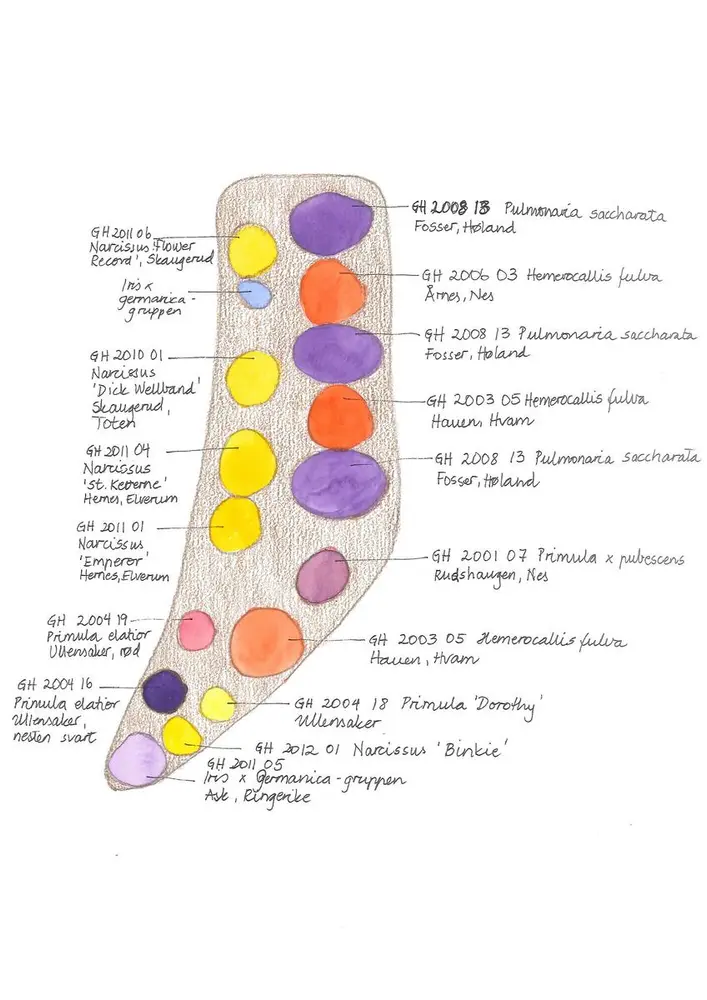 GH 2008 13 Pulmonaria saccharata
Fosser, Høland
GH 2011 06
Narcissus 'Flower
Record', Skaugerud
Iris x
germanica-
gruppen
GH 2006 03 Hemerocallis fulva
Årnes, Nes
GH 2008 13 Pulmonaria saccharata
Fosser, Høland
GH 2010 01
Narcissus
'Dick Wellband'
Skaugerud,
Toten
GH 2003 05 Hemerocallis fulva
Hauen, Hvam
GH 2011 04
Narcissus
'St. Keverne'
Hernes, Elverum
GH 2008 13 Pulmonaria saccharata
Fosser, Høland
GH 2011 01
Narcissus
'Emperor'
Hernes, Elverum
GH 2001 07 Primula x pubescens
Rudshaugen, Nes
GH 2004 19
Primula elatior
Ullensaker, rød
GH 2003 05 Hemerocallis fulva
Hauen, Hvam
GH 2004 16
Primula elatior
Ullensaker,
nesten svart
GH 2004 18 Primula 'Dorothy'
Ullensaker
GH 2012 01 Narcissus 'Binkie'
GH 2011 05
Iris x germanica-gruppen
Ask, Ringerike